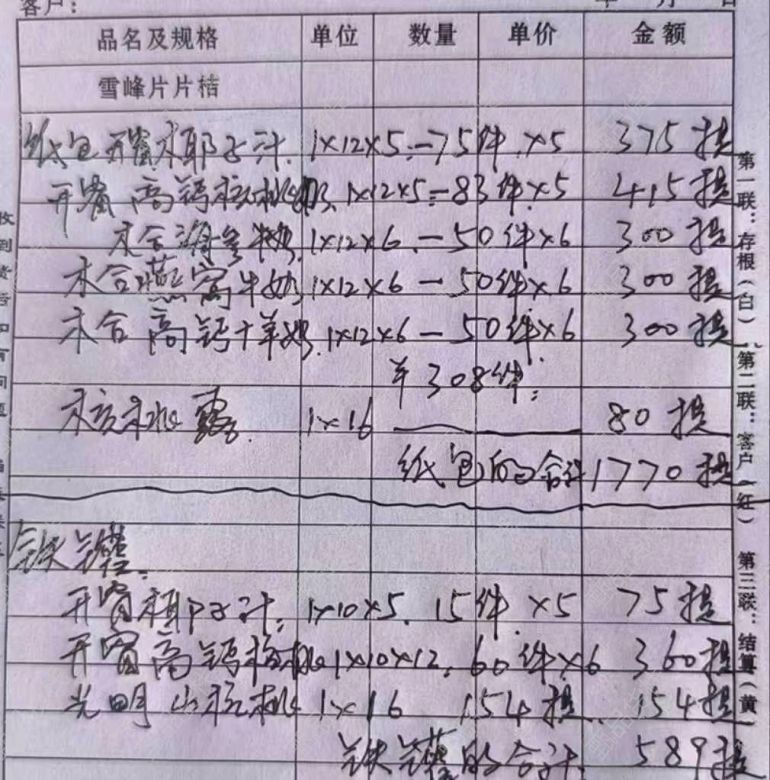 客户: 年 月 日
品名及规格 单位 数量 单价 金额
雪峰片片桔
纸包开窗椰子汁 1×12×5.—75件×5 375提
开窗高钙核桃奶 1×12×5—83件×5 415提
木合海参牛奶 1×12×6.—50件×6 300提
木合燕窝牛奶 1×12×6—50件×6 300提
木合高钙羊奶 1×12×6—50件×6 300提
308件
核桃露 1×16 80提
纸包的合计 1770提
铁罐
开窗椰子汁 1×10×5. 15件×5 75提
开窗高钙核桃 1×10×12. 60件×6 360提
光明山核桃 1×16 154提 154提
铁罐的合计 589提
第一联:存根(白)
第二联:客户(红)
第三联:结算(黄